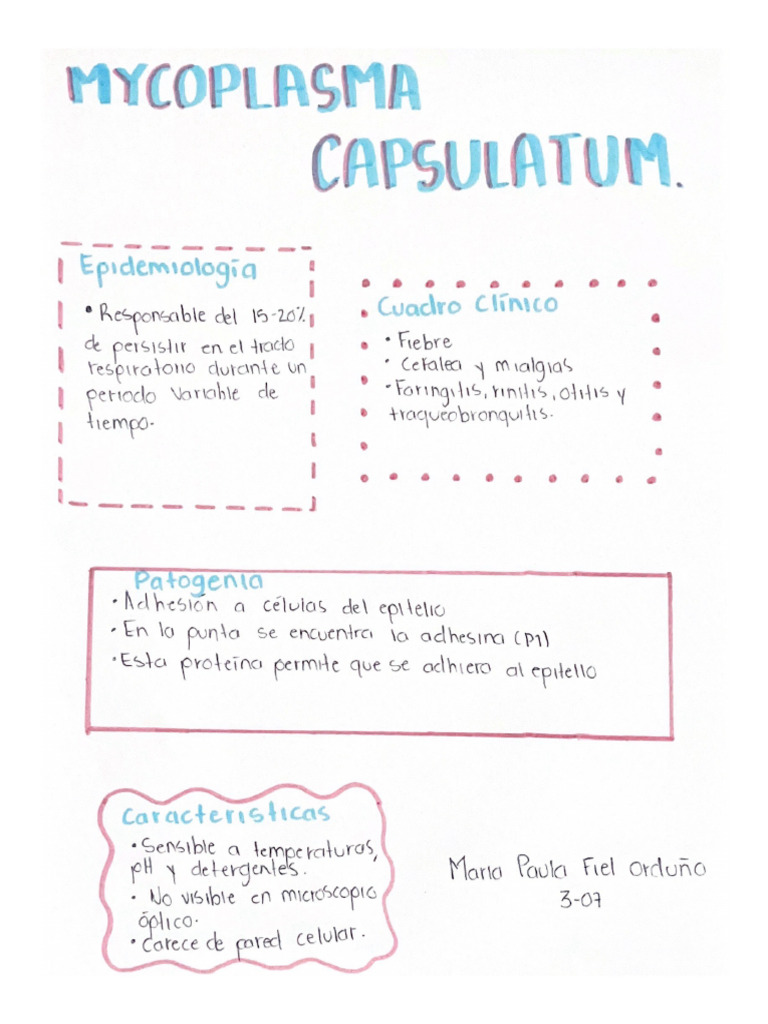 MYCOPLASMA
CAPSULATUM.
Epidemiología
• Responsable del 15-20%
de persistir en el tracto
respiratorio durante un
periodo variable de
tiempo.
Cuadro Clínico
• Fiebre
• Cefalea y mialgias
• Faringitis, rinitis, otitis y
traqueobronquitis.
Patogenia
• Adhesión a células del epitelio
• En la punta se encuentra la adhesina (P1)
• Esta proteína permite que se adhiera al epitelio
Características
• Sensible a temperaturas,
pH y detergentes.
• No visible en microscopio
óptico.
• Carece de pared celular.
Maria Paula Fiel Orduño
3-07